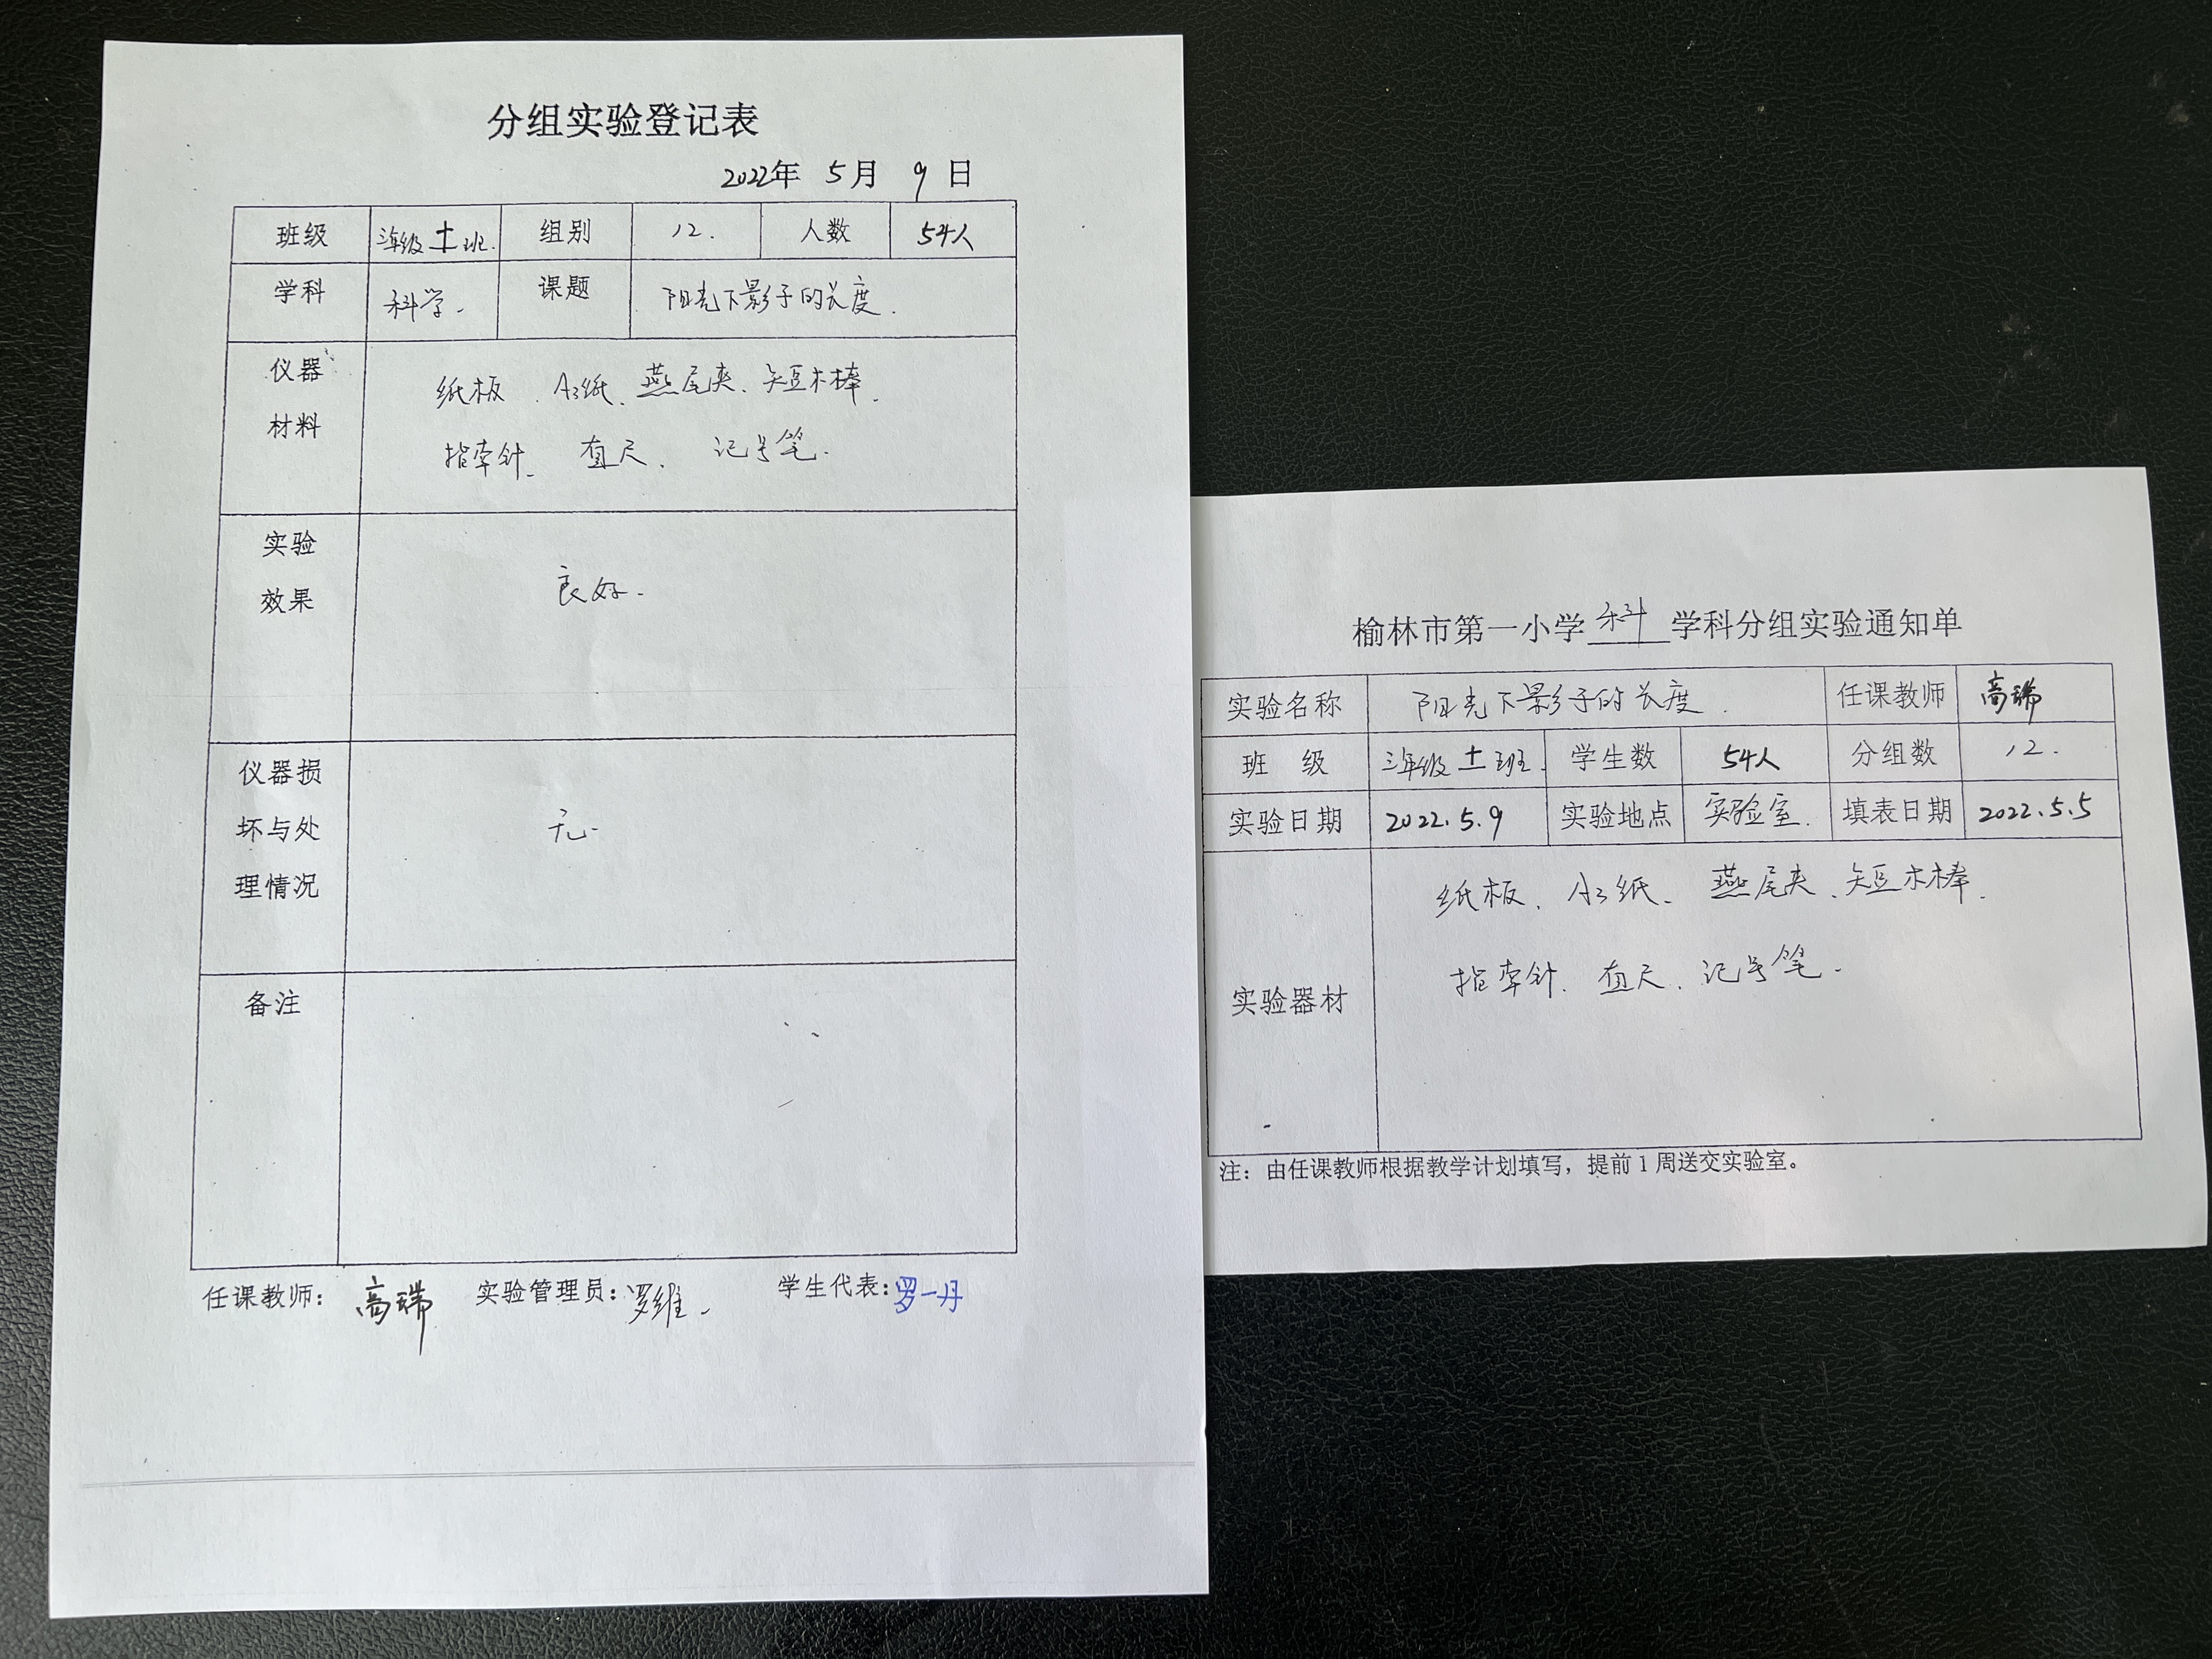 分组实验登记表
2022年 5月 9日
班级 三年级十一班. 组别 12. 人数 54人
学科 科学. 课题 阳光下影子的长度.
仪器
材料
纸板、A3纸、燕尾夹、短木棒、
指南针、直尺、记号笔.
实验
效果
良好.
仪器损
坏与处
理情况
无.
备注
任课教师: 高瑞 实验管理员: 罗维. 学生代表: 罗一丹
榆林市第一小学 科 学科分组实验通知单
实验名称 阳光下影子的长度. 任课教师 高瑞
班 级 三年级十一班. 学生数 54人 分组数 12.
实验日期 2022.5.9 实验地点 实验室. 填表日期 2022.5.5
实验器材
纸板、A3纸、燕尾夹、短木棒、
指南针、直尺、记号笔.
注：由任课教师根据教学计划填写，提前1周送交实验室。